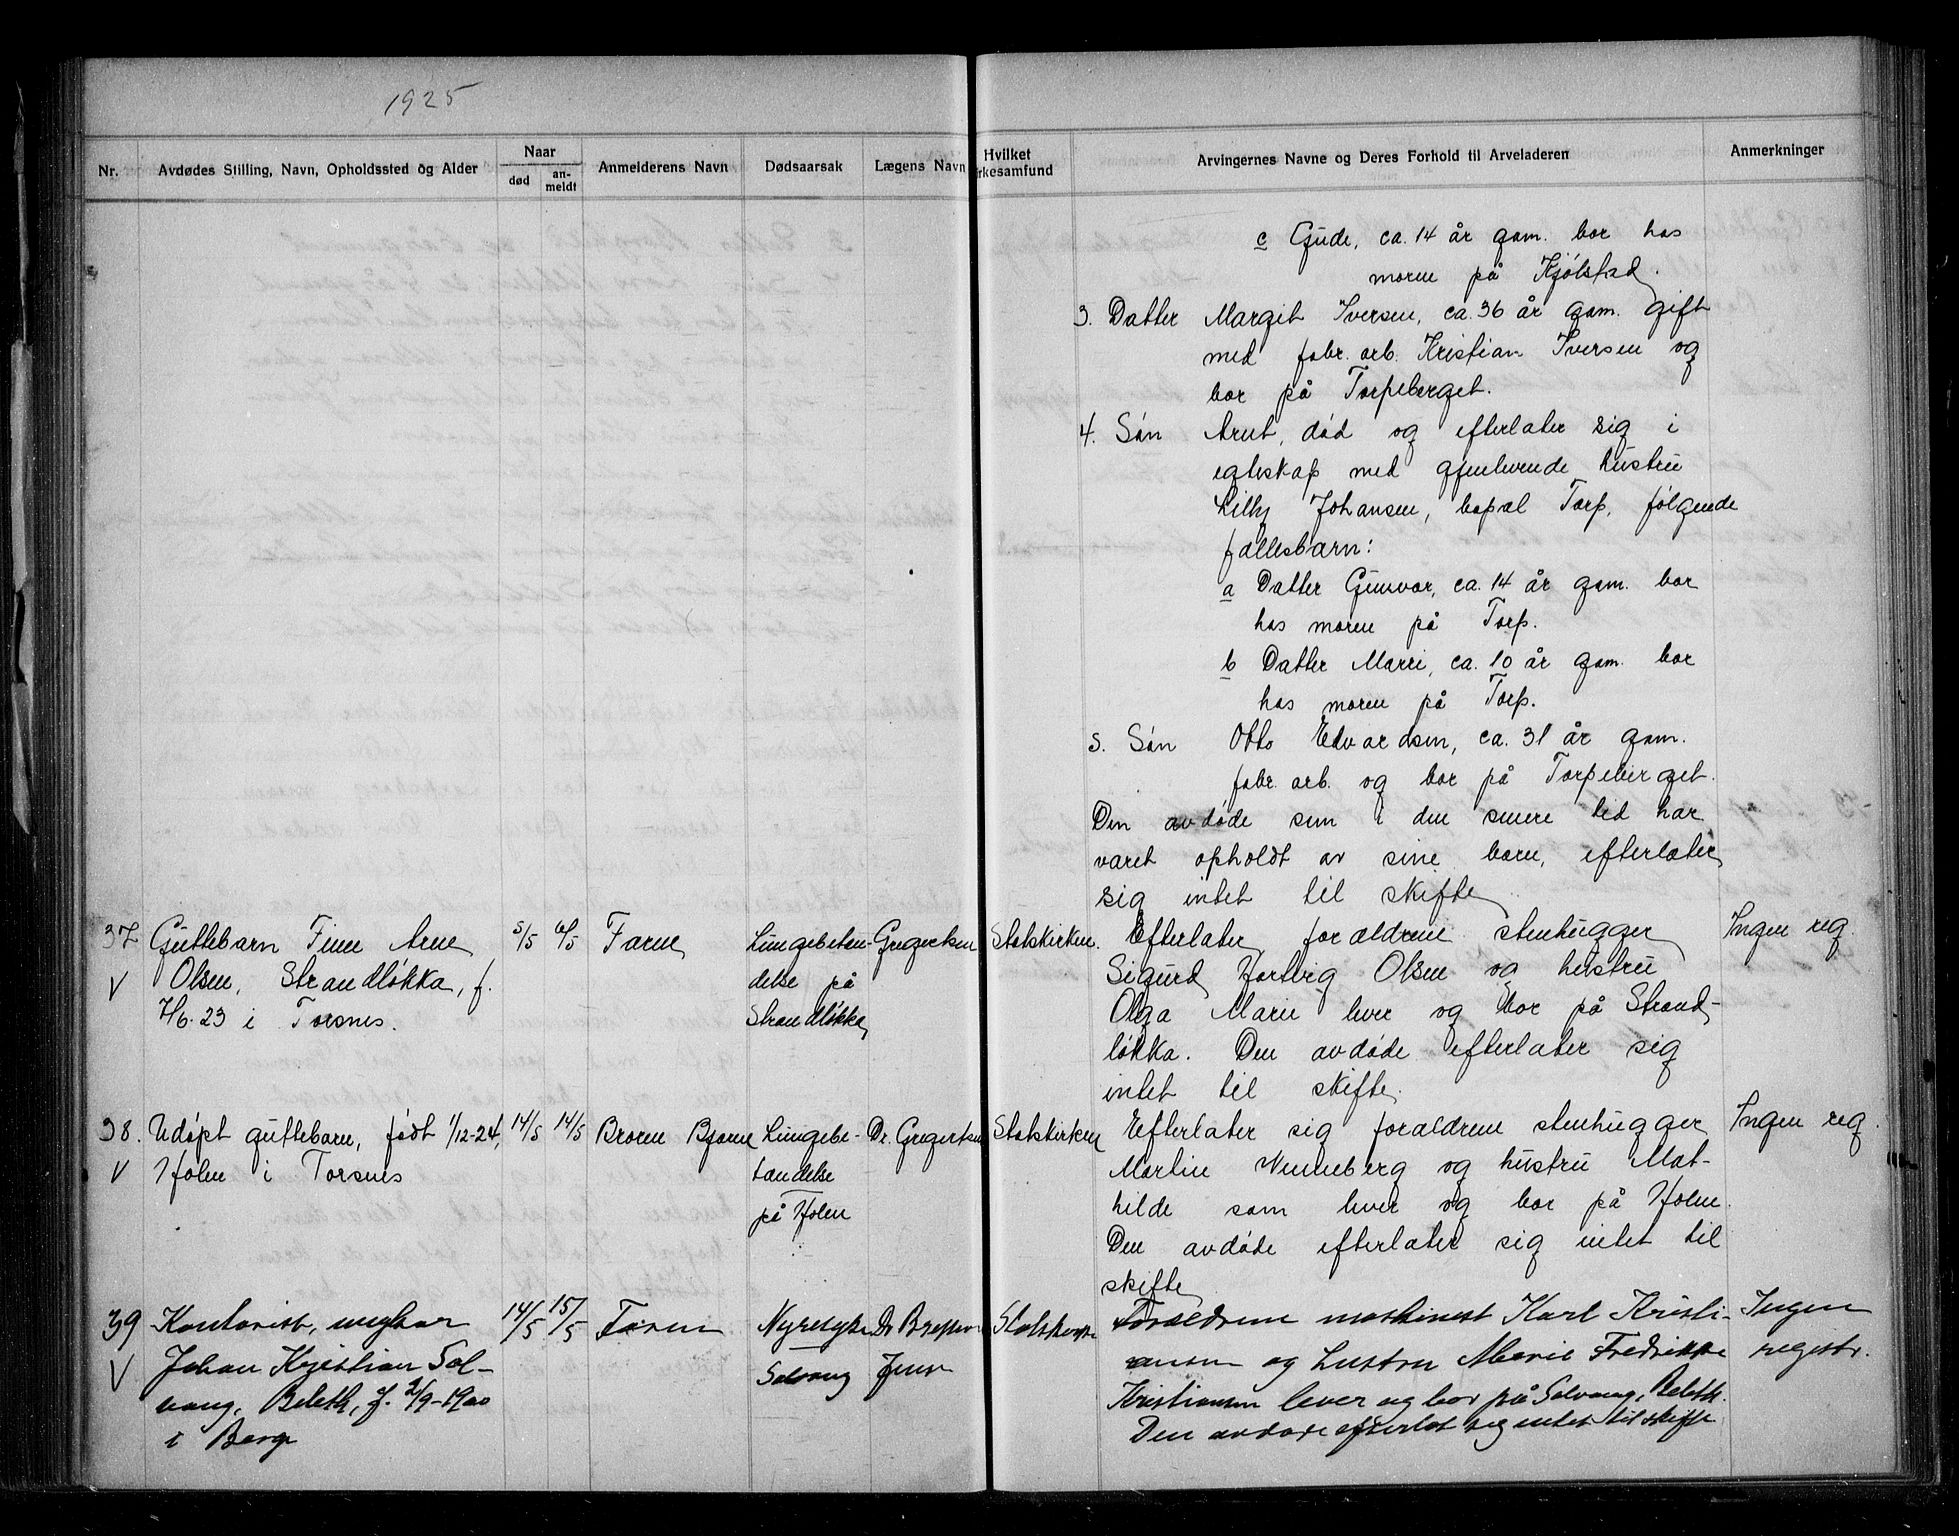 1925
Nr.
Avdødes Stilling, Navn, Opholdssted og Alder
Naar
død
an-
meldt
Anmelderens Navn
Dødsaarsak
Lægens Navn
Hvilket
rkesamfund
Arvingernes Navne og Deres Forhold til Arveladeren
Anmerkninger
c Gude, ca. 14 år gam. bor hos
moren på Kjølstad.
3. Datter Margit Iversen, ca. 36 år gam. gift
med fabr. arb. Kristian Iversen og
bor på Torpeberget.
4. Søn Arnt, død og efterlater sig i
egteskap med gjenlevende hustru
Lilly Johansen, bopæl Torp, følgende
fællesbarn:
a Datter Gunvor, ca. 14 år gam. bor
hos moren på Torp.
b Datter Marri, ca. 10 år gam. bor
hos moren på Torp.
5. Søn Otto Edvardsen, ca. 31 år gam.
fabr. arb. og bor på Torpeberget.
Den avdøde som i den senere tid har
været opholdt av sine barn, efterlater
sig intet til skifte
37 Guttebarn Finn Arne
V Olsen, Strandløkka, f.
7/6. 23 i Torsnes.
5/5
6/5
Faren
Lungebetæn-
delse på
Strandløkka
Gregertsen
Statskirken.
Efterlater foræeldrene stenhugger
Sigurd Hartvig Olsen og hustru
Olga Marie lever og bor på Strand-
løkka. Den avdøde efterlater sig
intet til skifte.
Ingen reg.
38. Udøpt guttebarn, født 1/12-24,
V Holen i Torsnes
14/5
14/5
Broren Bjarne
Lungebe-
tændelse
på Holen
Dr. Gregertsen
Statskirken
Efterlater sig forældrene stenhugger
Martin Wenneberg og hustru Mat-
hilde som lever og bor på Holen.
Den avdøde efterlater sig intet til
skifte
Ingen reg.
39 Kontorist, ungkar
V Johan Kristian Sol-
vang, Beleth, f. 2/9-1900
i Borge
14/5
15/5
Faren
Nyresyke
Solvang
Dr
Statskirken
Forældrene maskinest Karl Kristi-
ansen og hustru Marie Fredrikke
Kristiansen lever og bor på Solvang, Beleth.
Den avdøde efterlot sig intet til skifte
Ingen
registr.